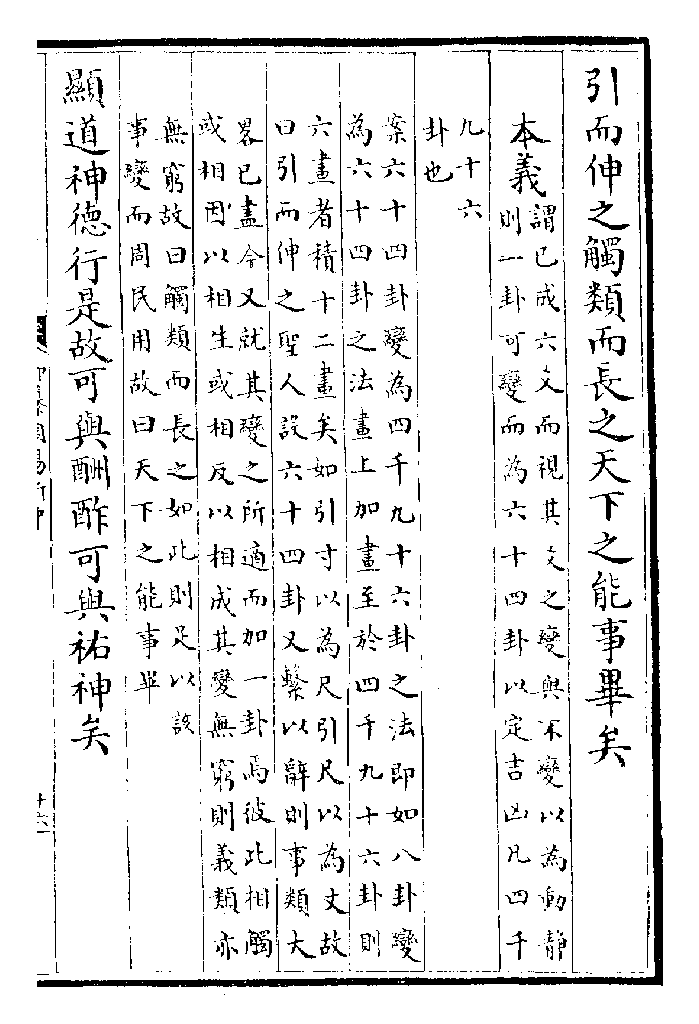 引而伸之觸類而長之天下之能事畢矣
本義
謂已成六爻而視其爻之變與不變以為動靜
則一卦可變而為六十四卦以定吉凶凡四千
九十六
卦也
案六十四卦變為四千九十六卦之法即如八卦變
為六十四卦之法畫上加畫至於四千九十六卦則
六畫者積十二畫矣如引寸以為尺引尺以為丈故
曰引而伸之聖人設六十四卦又繫以辭則事類大
畧已盡今又就其變之所適而加一卦焉彼此相觸
或相因以相生或相反以相成其變無窮則義類亦
無窮故曰觸類而長之如此則足以該
事變而周民用故曰天下之能事畢
顯道神德行是故可與酬酢可與祐神矣
御纂周易折中
十六